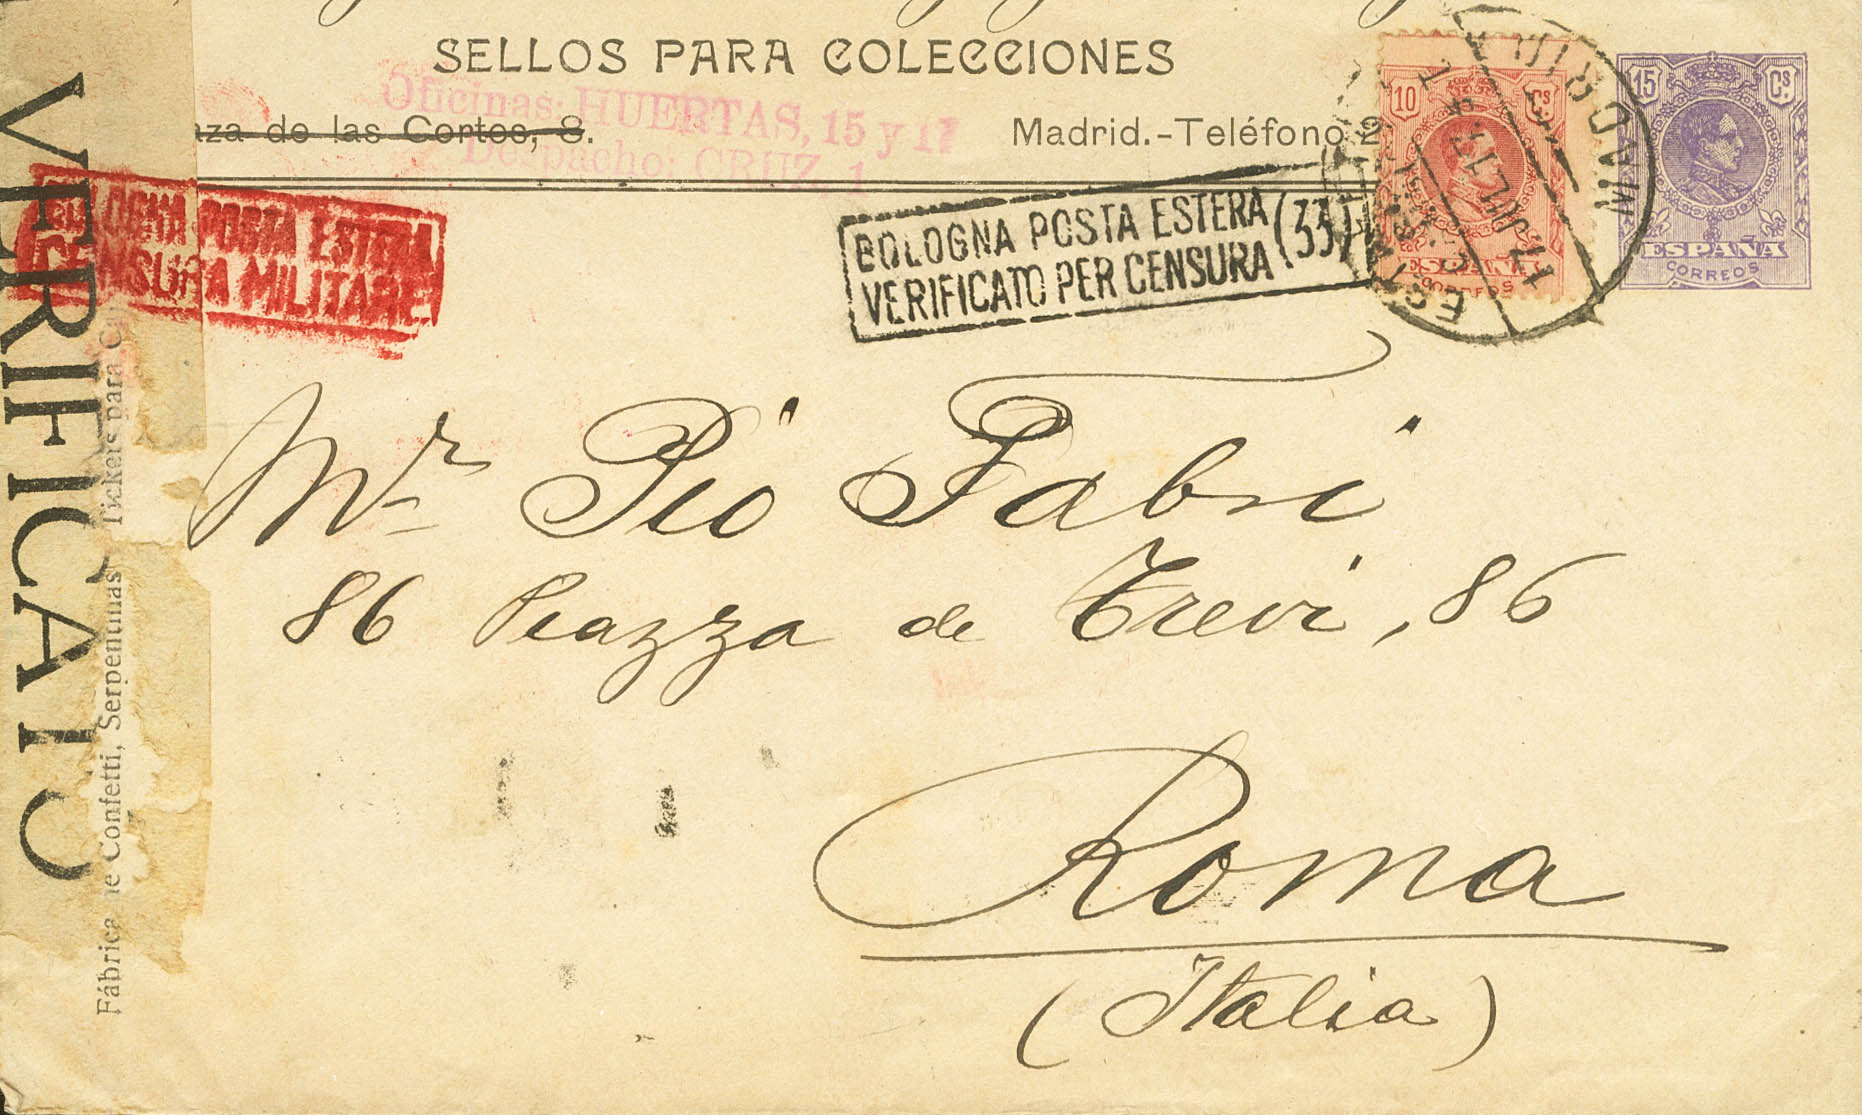 SELLOS PARA COLECCIONES
Oficinas: HUERTAS, 15 y 17
aza de las Cortes, 8.
Madrid.-Teléfono 2
Despacho: CRUZ, 1
10 Cs
ESPAÑA
CORREOS
15 Cs
ESPAÑA
CORREOS
MADRID
17 JUL 17
POSTA ESTERA
CENSURA MILITARE
BOLOGNA POSTA ESTERA
VERIFICATO PER CENSURA (33)
VERIFICATO
Fábrica de Confetti, Serpentinas Tickets para
Mr Pió Fabri
86 Piazza de Trevi, 86
Roma
(Italia)